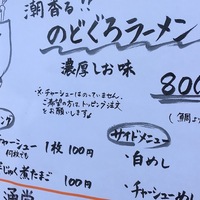 潮香る!!
のどぐろラーメン
濃厚しお味
800
※チャーシューはのっていません。
ご希望の方は、トッピング注文
をお願いします。
(鯛よ
ング
チャーシュー 1枚100円
何枚でも
じゅく煮たまご 100円
サイドメニュー
・白めし
・チャーシューめし
通常